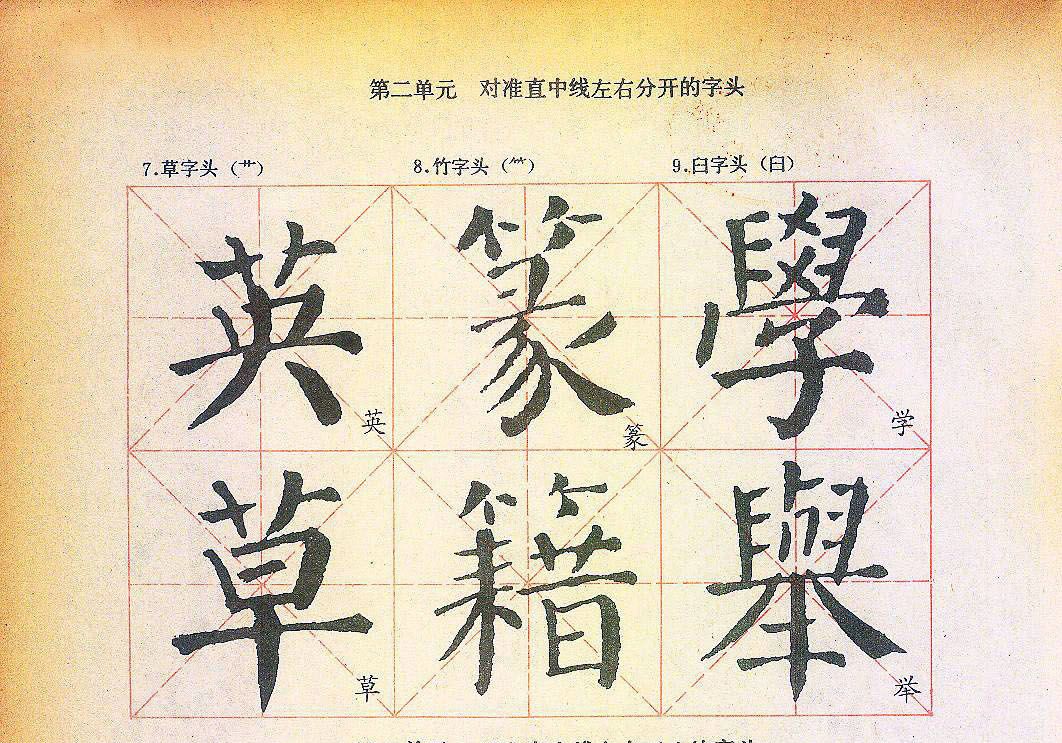 第二单元 对准直中线左右分开的字头
7.草字头（艹） 8.竹字头（⺮） 9.臼字头（臼）
英 篆 學
英 篆 学
草 籍 舉
草 举